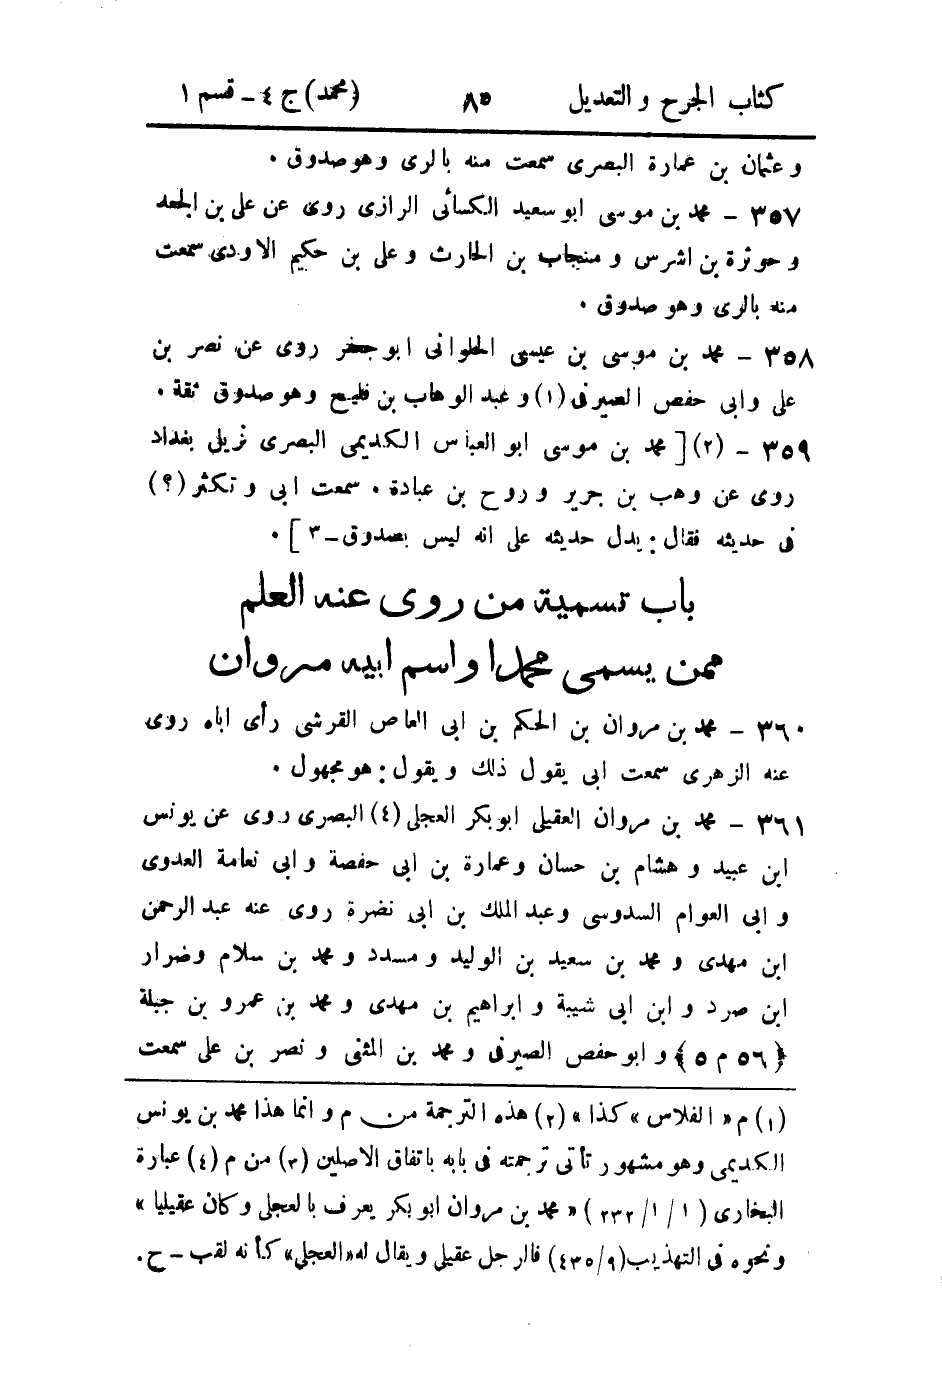 كتاب الجرح والتعديل ٨٥ (محمد) ج ٤ - قسم ١
وعثمان بن عمارة البصرى سمعت منه بالرى وهو صدوق .
٣٥٧ - محمد بن موسى ابو سعيد الكسائى الرازى روى عن على بن الجعد
وحوثرة بن اشرس ومنجاب بن الحارث وعلى بن حكيم الاودى سمعت
منه بالرى وهو صدوق .
٣٥٨ - محمد بن موسى بن عيسى الحلوانى ابو جعفر روى عن نصر بن
على وابى حفص الصيرفى (١) وعبد الوهاب بن فليح وهو صدوق ثقة .
٣٥٩ - (٢) [ محمد بن موسى ابو العباس الكديمى البصرى نزيل بغداد
روى عن وهب بن جرير وروح بن عبادة . سمعت ابى وتكثر (؟)
فى حديثه فقال : يدل حديثه على انه ليس بصدوق - ٣ ] .
باب تسمية من روى عنه العلم
ممن يسمى محمدا واسم ابيه مروان
٣٦٠ - محمد بن مروان بن الحكم بن ابى العاص القرشى رأى اباه روى
عنه الزهرى سمعت ابى يقول ذلك ويقول : هو مجهول .
٣٦١ - محمد بن مروان العقيلى ابو بكر العجلى (٤) البصرى روى عن يونس
ابن عبيد وهشام بن حسان وعمارة بن ابى حفصة وابى نعامة العدوى
وابى العوام السدوسى وعبد الملك بن ابى نضرة روى عنه عبد الرحمن
ابن مهدى ومحمد بن سعيد بن الوليد ومسدد ومحمد بن سلام وضرار
ابن صرد وابن ابى شيبة وابراهيم بن مهدى ومحمد بن عمرو بن جبلة
﴿٥٦ م ٥﴾ وابو حفص الصيرفى ومحمد بن المثنى ونصر بن على سمعت
(١) م « الفلاس » كذا » (٢) هذه الترجمة من م وانما هذا محمد بن يونس
الكديمى وهو مشهور تأتى ترجمته فى بابه باتفاق الاصلين (٣) من م (٤) عبارة
البخارى (١/١/٢٣٢) « محمد بن مروان ابو بكر يعرف بالعجلى وكان عقيليا »
ونحوه فى التهذيب (٩/٤٣٥) فالرجل عقيلى ويقال له « العجلى » كأنه لقب - ح .